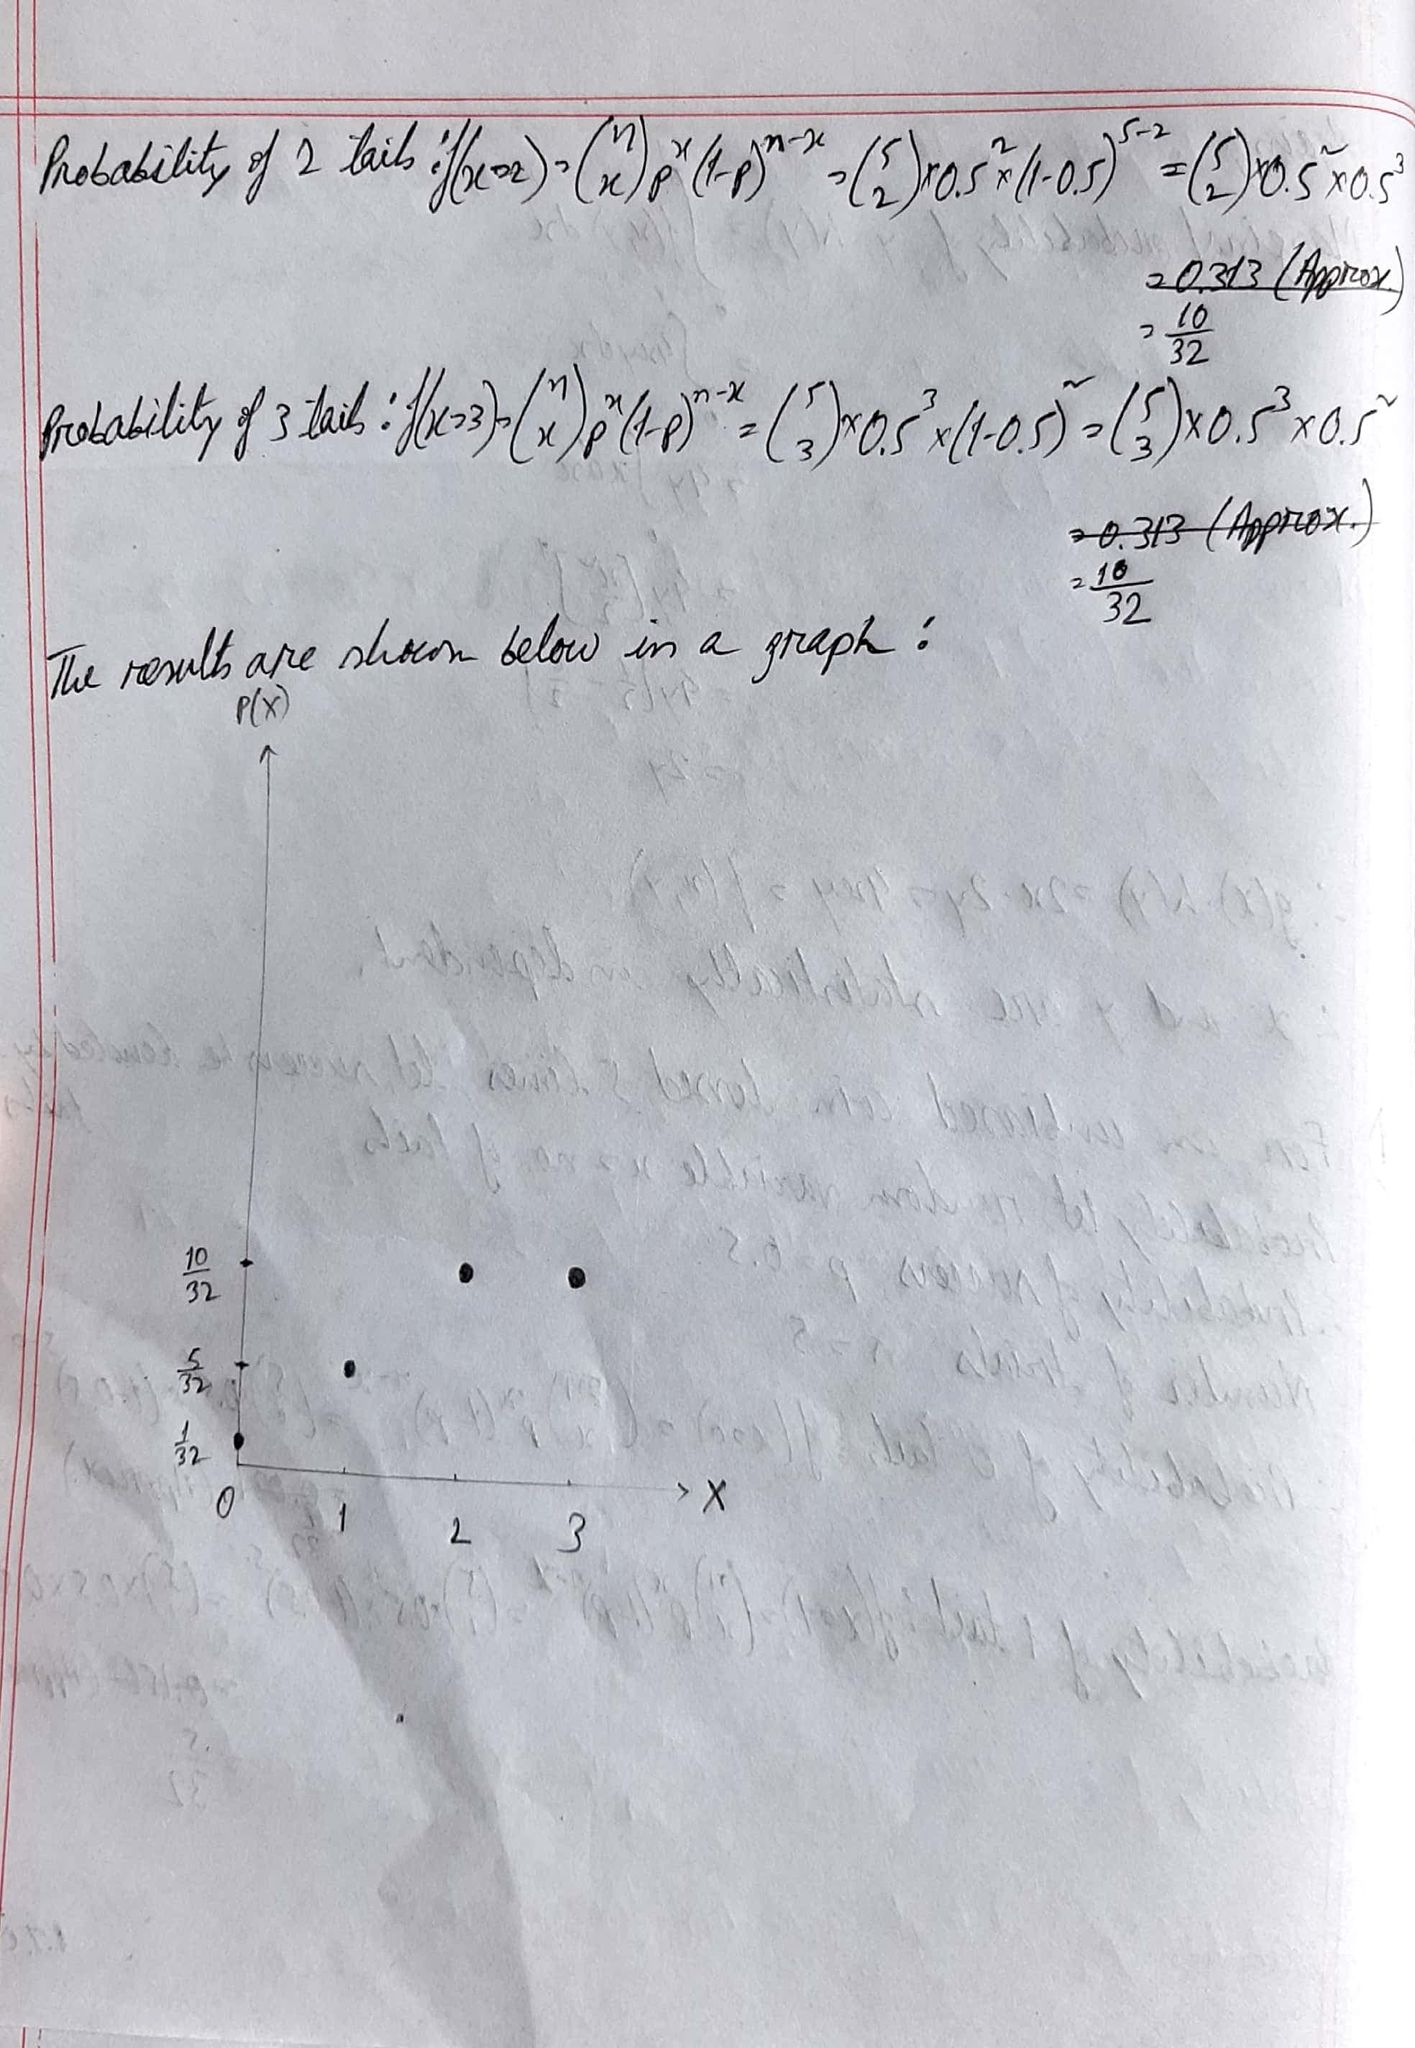 Probability of 2 tails : f(x=2) = (n x) p^x (1-p)^{n-x} = (5 2) × 0.5^2 × (1-0.5)^{5-2} = (5 2) × 0.5^2 × 0.5^3
= 0.313 (Approx.)
= 10/32
Probability of 3 tails : f(x=3) = (n x) p^x (1-p)^{n-x} = (5 3) × 0.5^3 × (1-0.5)^2 = (5 3) × 0.5^3 × 0.5^2
= 0.313 (Approx.)
= 10/32
The results are shown below in a graph :
P(X)
10/32
5/32
1/32
0 1 2 3 X